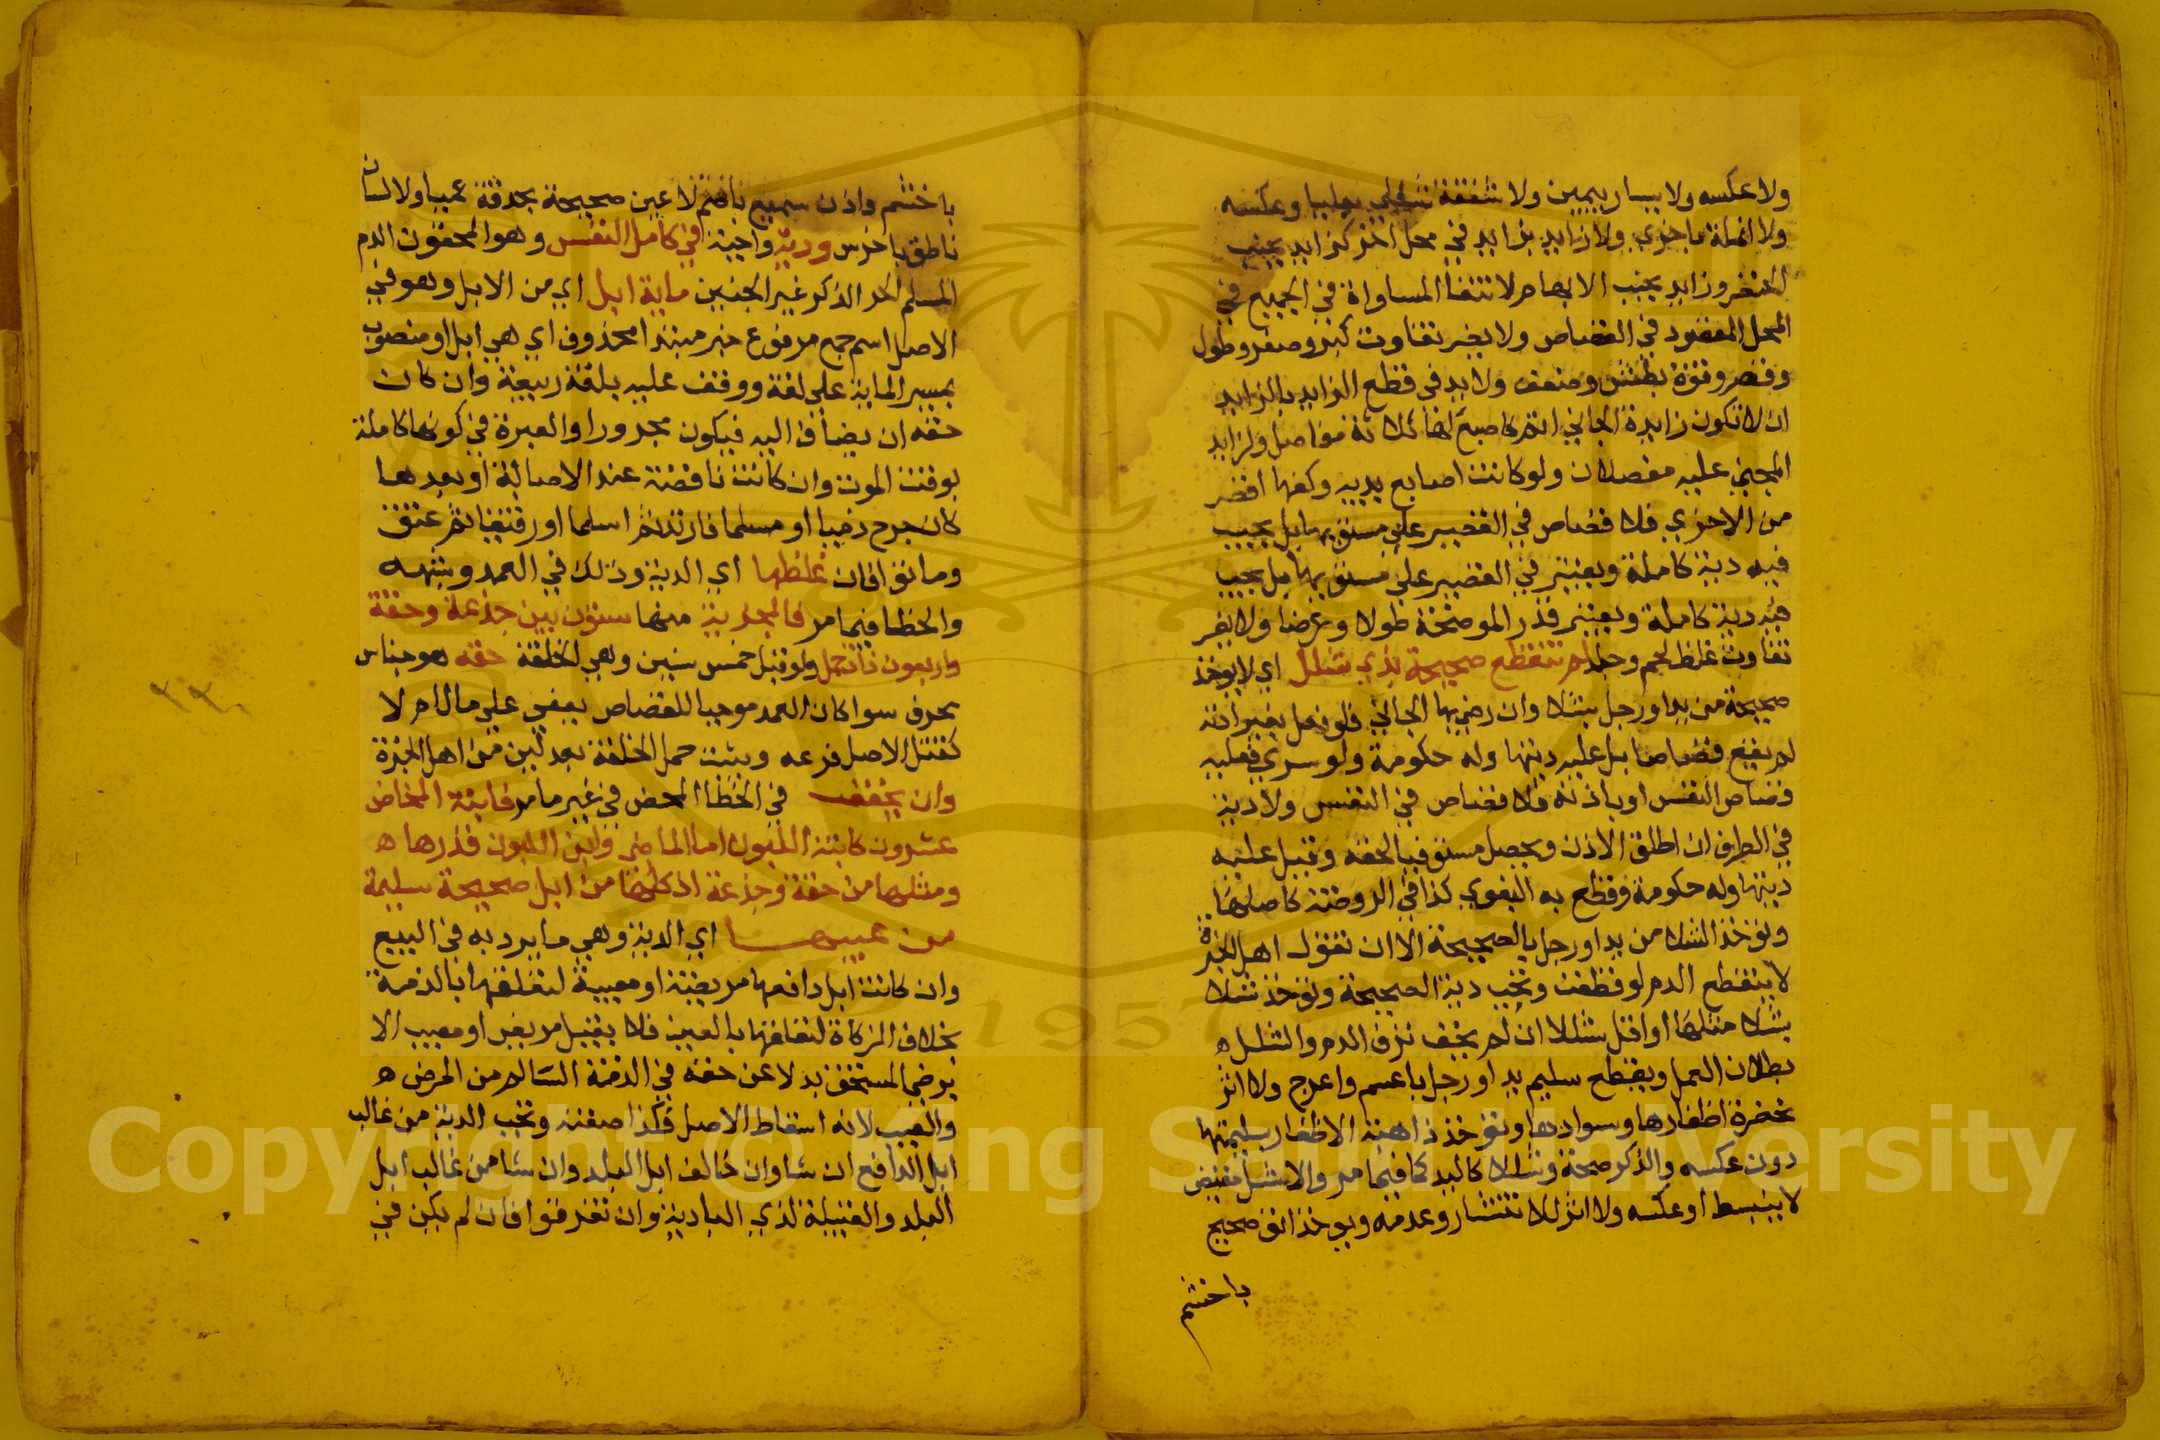 ولا عكسه ولا يسار بيمين ولا شفة سفلى بعليا وعكسه
ولا انملة باخري ولا زايد بزايد في محل اخر كزايد بجنب
الخنصر وزايد بجنب الابهام لانتفا المساواة في الجميع في
المحل المقصود في القصاص ولا يضر تفاوت كبر وصغر وطول
وقصر وقوة بطش وضعف ولا بد في قطع الزايد بالزايد
ان لا تكون زايدة الجاني اتم كاصبع لها ثلاثة مفاصل ولزايد
المجني عليه مفصلان ولو كانت اصابع يديه وكفها اقصر
من الاخري فلا قصاص في القصير على مستويها بل يجب
فيه دية كاملة ويعتبر في القصير على مستويها بل يجب
فيه دية كاملة ويعتبر قدر الموضحة طولا وعرضا ولا يضر
تفاوت غلظ لحم وجلد لم تنقطع صحيحة بذي شلل اي لا يوخذ
صحيحة من يد او رجل بشلا وان رضي بها الجاني فلو فعل بغير اذنه
لم يقع قصاصا بل عليه ديتها وله حكومة ولو سري فعليه
قصاص النفس او باذنه فلا قصاص في النفس ولا دية
في الطرف ان اطلق الاذن ويجعل مستوفيا لحقه وقيل عليه
ديتها وله حكومة وقطع به البغوي كذا في الروضة كاصلها
وتوخذ الشلا من يد او رجل بالصحيحة الا ان تقول اهل الخبرة
لا ينقطع الدم لو قطعت وتجب دية الصحيحة وتوخذ شلا
بشلا مثلها او اقل شللا ان لم يخف نزف الدم والشلل ه
بطلان العمل ويقطع سليم يد او رجل باعسم واعرج ولا اثر
لخضرة اظفارها وسوادها وتوخذ ذاهبة الاظفار بسليمتها
دون عكسه والذكر صحة وشللا كاليد كما فيما مر والاشل منقبض
لا ينبسط او عكسه ولا اثر للانتشار وعدمه ويوخذ انف صحيح
باخشم
باخشم واذن سميع باصم لا عين صحيحة بحدقة عميا ولا لسان
ناطق باخرس ودية واجبة في كامل النفس وهو المحقون الدم
المسلم الحر الذكر غير الجنين ماية ابل اي من الابل وهو في
الاصل اسم جمع مرفوع خبر مبتدا محذوف اي هي ابل او منصوب
بمييز الماية على لغة ووقف عليه بلغة ربيعة وان كان
حقه ان يضاف اليه فيكون مجرورا والعبرة في كونها كاملة
بوقت الموت وان كانت ناقصة عند الاصابة او بعدها
كان جرح ذميا او مسلما فارتد ثم اسلم او رقيقا ثم عتق
وماتوا فان غلظها اي الدية وذلك في العمد وشبهه
والخطا فيما مر فالمجزية منها ستون بين جذعة وحقة
واربعون ذات حمل ولو قبل خمس سنين وهي الخلفة حقه هو جناس
بحرف سوا كان العمد موجبا للقصاص بعفي على مال ام لا
كقتل الاصل فرعه ويثبت حمل الخلفة بعدلين من اهل الخبرة
وان يخفف في الخطا المحض في غير ما مر فابنة المخاض
عشرون كابنة اللبون اما الماضي وابن اللبون قدرها ه
ومثلها من حقة وجذعة اذ كلها من ابل صحيحة سليمة
من عيبها اي الدية وهي ما يرد به في البيع
وان كانت ابل دافعها مريضة او معيبة لتعلقها بالذمة
بخلاف الزكاة لتعلقها بالعين فلا يقبل مريض او معيب الا
برضي المستحق بدلا عن حقه في الذمة السالم من المرض ه
والعيب لانه اسقاط الاصل فكذا صفته وتجب الدية من غالب
ابل الدافع ان شا وان خالف ابل البلد وان شا من غالب ابل
البلد والقبيلة لذي البادية وان تفرقوا فان لم يكن في